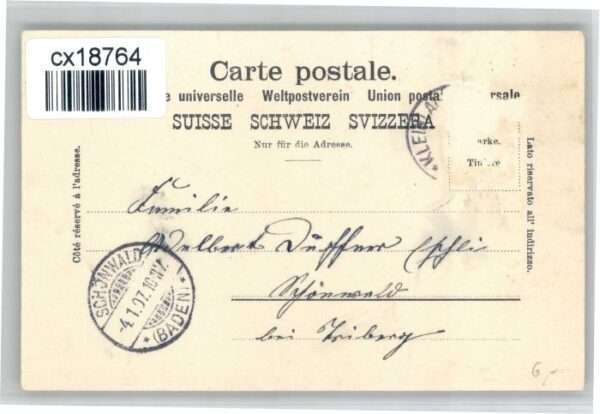 cx18764
Carte postale.
e universelle Weltpostverein Union posta rsale
SUISSE SCHWEIZ SVIZZERA
Nur für die Adresse.
*KLEIN
arke.
Tim re
Côté réservé à l'adresse.
Lato riservato all' indirizzo.
Familie
Adelbert Duffner
Schönwald
bei Triberg
SCHÖNWALD
-4.1.07.10-11V.
*(BADEN)*
6,-